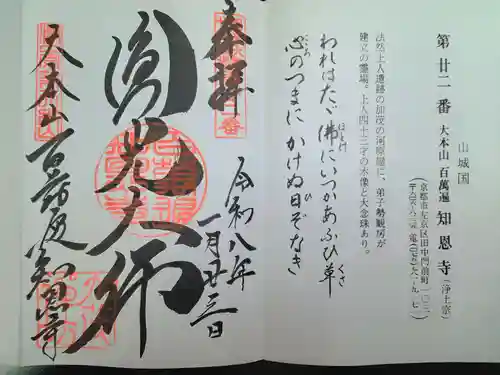 山城国
第廿二番 大本山 百萬遍 知恩寺(浄土宗)
(京都市左京区田中門前町一〇三)
法然上人遺跡の加茂の河原屋に、弟子勢観房が
建立の霊場。上人四十三才の木像と大念珠あり。
われはたゞ佛にいつかあふひ草
ほとけ
くさ
心のつまに かけぬ日ぞなき
こゝろ
ひ
奉拝
令和八年
一月廿三日
圓光大師
大本山百萬遍知恩寺